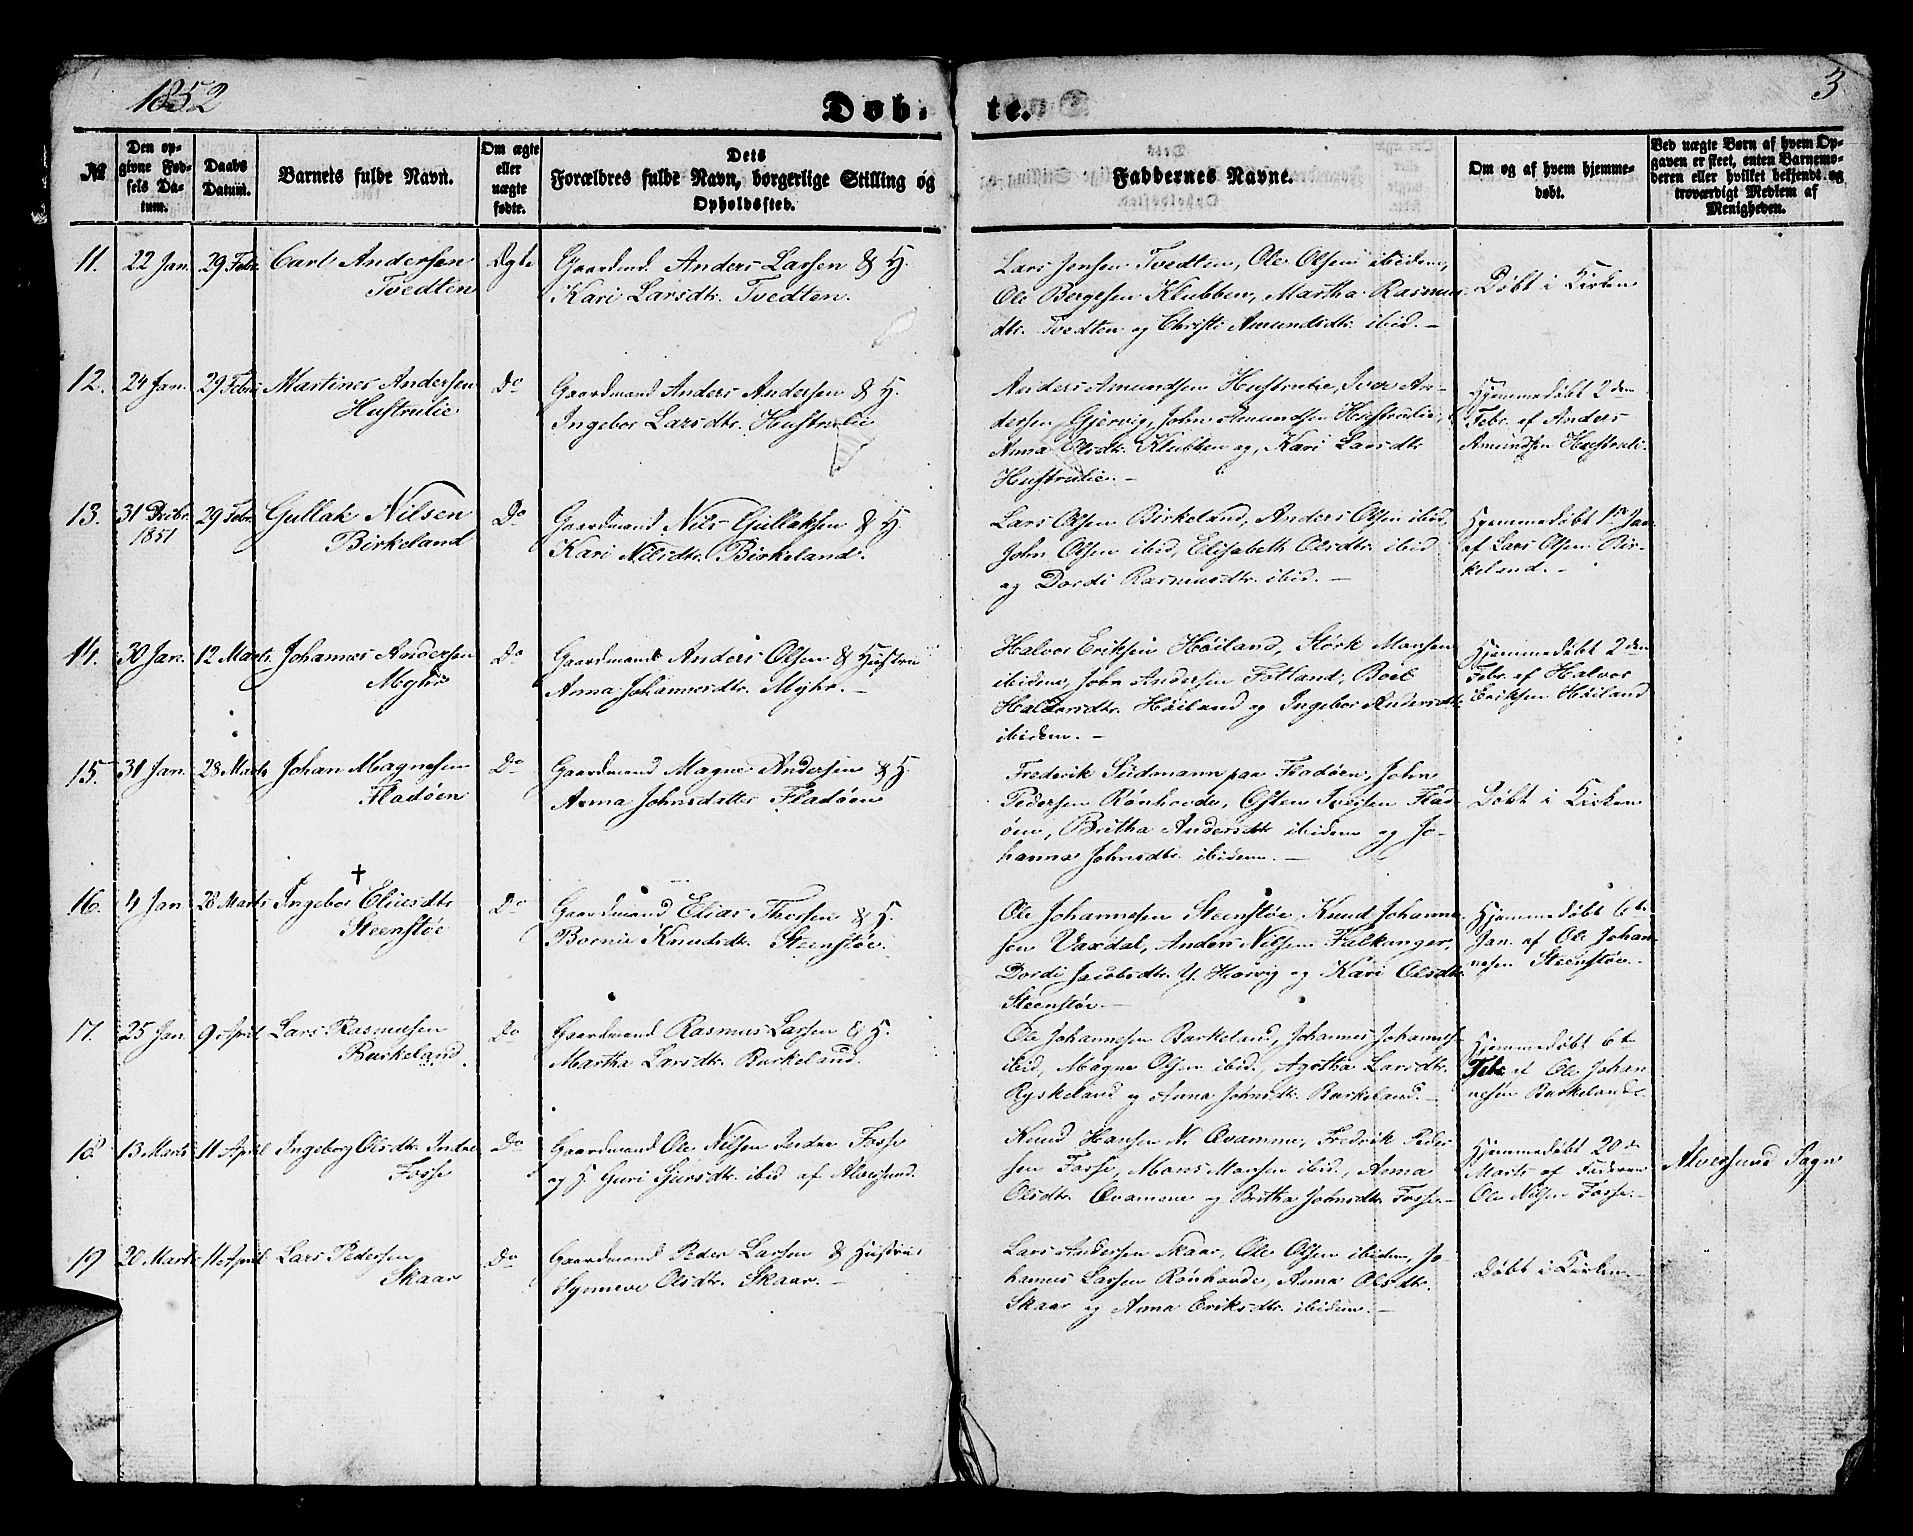 1852
Døb. te.
3
№
Den opgivne Fødsels Datum.
Daabs Datum.
Barnets fulde Navn.
Om ægte eller uægte fødte.
Dets Forældres fulde Navn, borgerlige Stilling og Opholdssted.
Faddernes Navne.
Om og af hvem hjemmedøbt.
Ved uægte Børn af hvem Opgaven er skeet, enten Barnemoderen eller hvilket bekjendt og troværdigt Medlem af Menigheden.
11. 22 Jan. 29 Febr. Carl Andersen
Tvedten
Ægte
Gaardmd. Anders Larsen & H.
Kari Larsdtr. Tvedten.
Lars Jensen Tvedten, Ole Olsen ibidem,
Ole Børgesen Klubben, Martha Rasmus
dtr. Tvedten og Christi Amundsdtr. ibid. –
Døbt i Kirken
12. 24 Jan. 29 Febr. Martines Andersen
Hustrulie
Do
Gaardmand Anders Andersen & H.
Ingebor Larsdtr. Hustrulie
Anders Amundsen Hustrulie, Iver An-
dersen Gjervig, John Amundsen Hustrulie,
Anna Olsdtr. Klubben og, Kari Larsdtr
Hustrulie. –
Hjemmedøbt 2den
Febr. af Anders
Amundsen Hustruli-
13. 31 Decbr. 1851 29 Febr. Gullak Nilsen
Birkeland
Do
Gaardmand Nils Gullaksen & H.
Kari Nilsdtr. Birkeland.
Lars Olsen Birkeland, Anders Olsen ibid,
John Olsen ibid, Elisabeth Olsdtr. ibid
og Dordi Rasmusdtr. ibid. –
Hjemmedøbt 1ste Jan.
af Lars Olsen Bir-
keland. –
14. 30 Jan. 12 Marts. Johannes Andersen
Myhr
Do
Gaardmand Anders Olsen & Hustru
Anna Johannesdtr. Myhr. –
Halvor Eriksen Høiland, Størk Monsen
ibidem, John Andersen Fotland, Boel
Halvorsdtr. Høiland og Ingebor Andersdtr.
ibidem. –
Hjemmedøbt 2den
Febr. af Halvor
Eriksen Høiland
15. 31 Jan. 28 Marts Johan Magnesen
Fladøen
Do
Gaardmand Magne Andersen & H.
Anna Johnsdatter Fladøen
Frederik Südmann paa Fladøen, John
Pedersen Rønhovde, Østen Iversen Flad-
øen, Britha Andersdtr ibidem og Jo-
hanna Johnsdtr. ibidem. –
Døbt i Kirken
16. 4 Jan 28 Marts Ingebor Eliesdtr
†
Steenstøe
Do
Gaardmand Elias Thossen & H.
Bornie Knudsdtr. Steenstøe.
Ole Johannesen Steenstøe, Knud Johanne-
sen Vaxdal, Anders Nilsen Falkanger,
Dordi Jacobsdtr. Y. Hervig og Kari Olsdtr.
Steenstøe. –
Hjemmedøbt 6te
Jan. af Ole Johan-
nesen Steenstøe. –
17. 25 Jan. 9 April Lars Rasmusen
Burkeland.
Do
Gaardmand Rasmus Larsen & H.
Martha Larsdtr. Burkeland.
Ole Johannesen Burkeland, Johannes Johannes-
ibid, Magne Olsen ibid., Agotha Larsdtr.
Ryskeland og Anna Johnsdtr. Burkeland. –
Hjemmedøbt 6te
Febr. af Ole Johan-
nesen Burkeland.
18. 13 Marts 11 April Ingeborg Olsdtr. Indre
Fosse
Do
Gaardmand Ole Nilsen Indre Fosse
og H. Guri Sjursdtr. ibid af Alversund.
Knud Hansen N. Qvamme, Fredrik Peder-
sen Fosse, Mons Monsen ibid., Anna
Olsdtr. Qvamme og Britha Johnsdtr. Fosse –
Hjemmedøbt 20de
Marts af Faderen
Ole Nilsen Fosse. –
Alversund Sogn
19 20 Marts 11 April Lars Pedersen
Skaar
Do
Gaardmand Peder Larsen & Hustru
Synneve Olsdtr. Skaar. –
Lars Andersen Skaar, Ole Olsen ibidem, Jo-
hannes Larsen Rønhovde, Anna Olsdtr.
Skaar og Anna Eriksdtr. ibidem. –
Døbt i Kirken. –